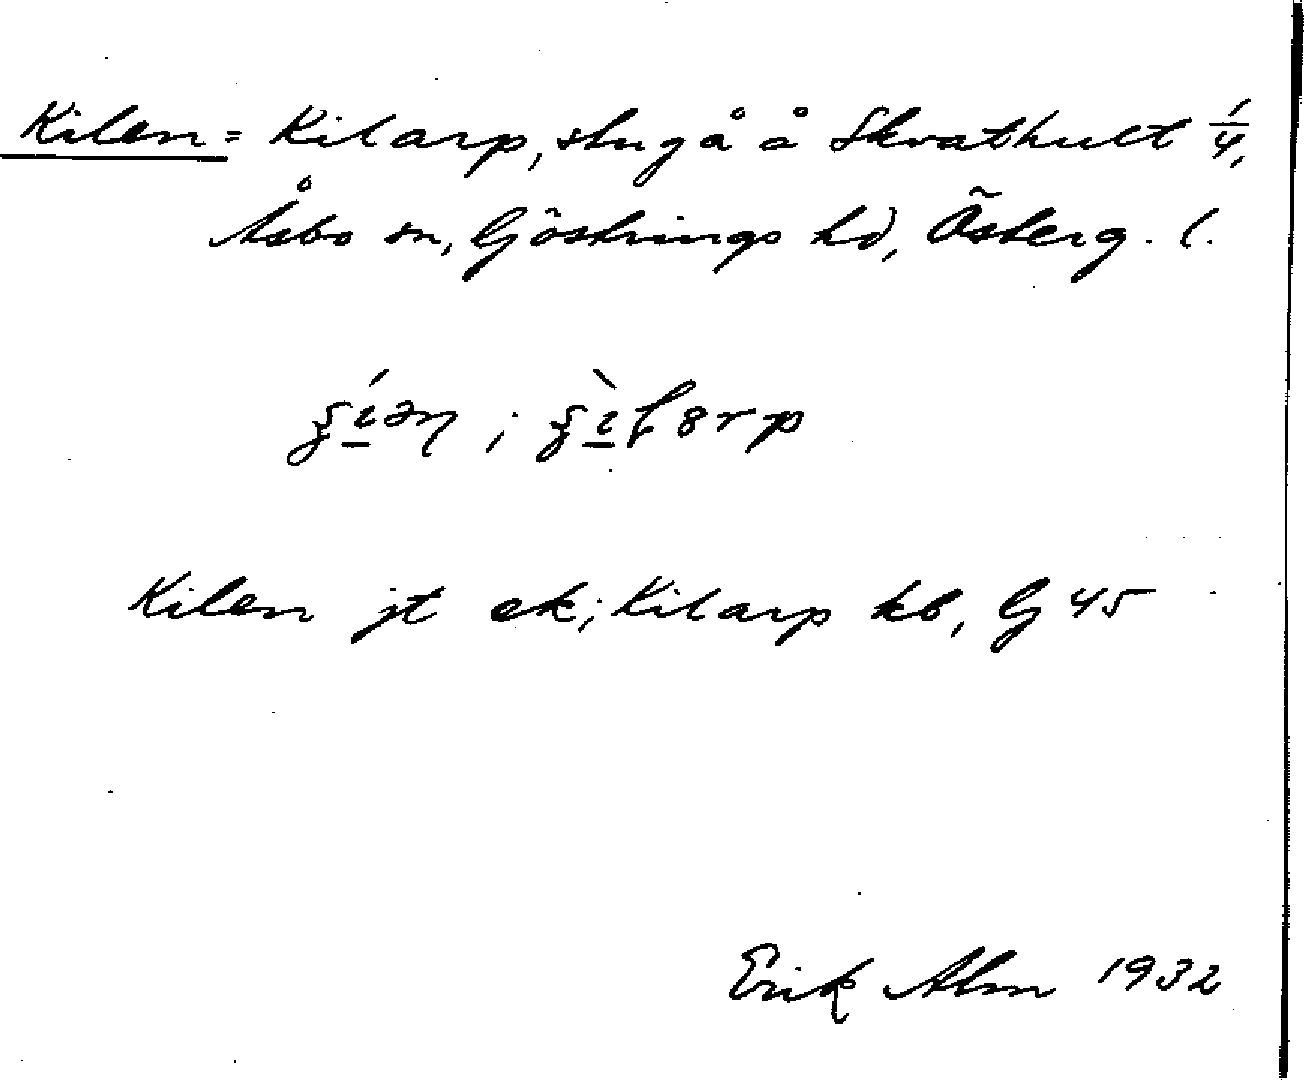 Kilen = Kilarp, stuga å Skvathult 1/4,
Åsbo sn, Göstrings hd, Österg. l.
Kilen jt ek; Kilarp kb, G 45
Erik Alm 1932